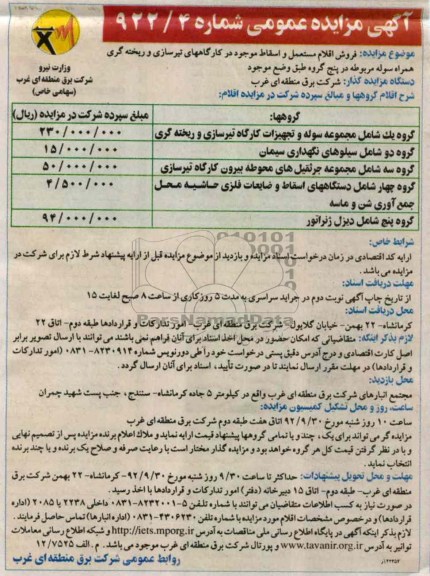 آگهی مزایده عمومی شماره ۹۲۲/۴
وزارت نیرو
شرکت برق منطقه ای غرب
(سهامی خاص)
موضوع مزایده: فروش اقلام مستعمل و اسقاط موجود در کارگاههای تیرسازی و ریخته گری
همراه سوله مربوطه در پنج گروه طبق وضع موجود
دستگاه مزایده گذار: شرکت برق منطقه ای غرب
شرح اقلام گروهها و مبالغ سپرده شرکت در مزایده اقلام:
گروهها: مبلغ سپرده شرکت در مزایده (ریال)
گروه یک شامل مجموعه سوله و تجهیزات کارگاه تیرسازی و ریخته گری ۲۳۰/۰۰۰/۰۰۰
گروه دو شامل سیلوهای نگهداری سیمان ۱۵/۰۰۰/۰۰۰
گروه سه شامل مجموعه جرثقیل های محوطه بیرون کارگاه تیرسازی ۵۰/۰۰۰/۰۰۰
گروه چهار شامل دستگاههای اسقاط و ضایعات فلزی حاشیه محل ۴/۵۰۰/۰۰۰
جمع آوری شن و ماسه
گروه پنج شامل دیزل ژنراتور ۹۴/۰۰۰/۰۰۰
شرایط خاص:
ارایه کد اقتصادی در زمان درخواست اسناد مزایده و بازدید از موضوع مزایده قبل از ارایه پیشنهاد شرط لازم برای شرکت در
مزایده می باشد.
مهلت دریافت اسناد:
از تاریخ چاپ آگهی نوبت دوم در جراید سراسری به مدت ۵ روز کاری از ساعت ۸ صبح لغایت ۱۵
محل دریافت اسناد:
کرمانشاه- ۲۲ بهمن- خیابان گلایول- شرکت برق منطقه ای غرب- امور تدارکات و قراردادها طبقه دوم- اتاق ۲۲
لازم بذکر اینکه: متقاضیانی که امکان حضور در محل اخذ اسناد برای آنان فراهم نمی باشد می توانند با ارسال تصویر برابر
اصل کارت اقتصادی و درج آدرس دقیق پستی درخواست خود را طی دورنویس شماره ۸۲۳۰۹۱۲-۰۸۳۱ (امور تدارکات
و قراردادها) در مهلت مقرر ارسال نمایند تا در صورت تأیید، اسناد برای آنان ارسال گردد.
محل بازدید:
مجتمع انبارهای شرکت برق منطقه ای غرب واقع در کیلومتر ۵ جاده کرمانشاه- سنندج، جنب پست شهید چمران
ساعت، روز و محل تشکیل کمیسیون مزایده:
ساعت ۱۰ روز شنبه مورخ ۹۲/۹/۳۰ اتاق هفت طبقه دوم شرکت برق منطقه ای غرب
مزایده گر می تواند برای یک، چند و یا تمامی گروهها پیشنهاد قیمت ارایه نماید و ملاک اعلام برنده مزایده پس از تصمیم نهایی
و با در نظر گرفتن قیمت کل هر گروه خواهد بود و مزایده گذار مختار است با رعایت صرفه و صلاح یک برنده و یا چند برنده
انتخاب نماید.
مهلت و محل تحویل پیشنهادات: حداکثر تا ساعت ۹/۳۰ روز شنبه مورخ ۹۲/۹/۳۰- کرمانشاه- ۲۲ بهمن شرکت برق
منطقه ای غرب- طبقه دوم- اتاق ۱۵ دبیرخانه (دفتر) امور تدارکات و قراردادها با اخذ رسید.
در صورت نیاز به کسب اطلاعات متقاضیان می توانند با شماره تلفن ۵-۸۲۳۲۰۰۱-۰۸۳۱ داخلی ۲۲۳۸ یا ۲۰۸۵ (اداره
قراردادها) و در خصوص مشخصات اقلام مورد مزایده با شماره تلفن ۴۳۰۶۲۳۰-۰۸۳۱ (اداره انبارها) تماس حاصل فرمایند.
لازم بذکر اینکه آگهی در پایگاه اطلاع رسانی ملی مناقصات به آدرس http://iets.mporg.ir و شبکه اطلاع رسانی معاملات
توانیر به آدرس www.tavanir.org.ir و پورتال شرکت برق منطقه ای غرب موجود می باشد. م الف ۱۲/۷۵۲۵
روابط عمومی شرکت برق منطقه ای غرب
ParsNamadData